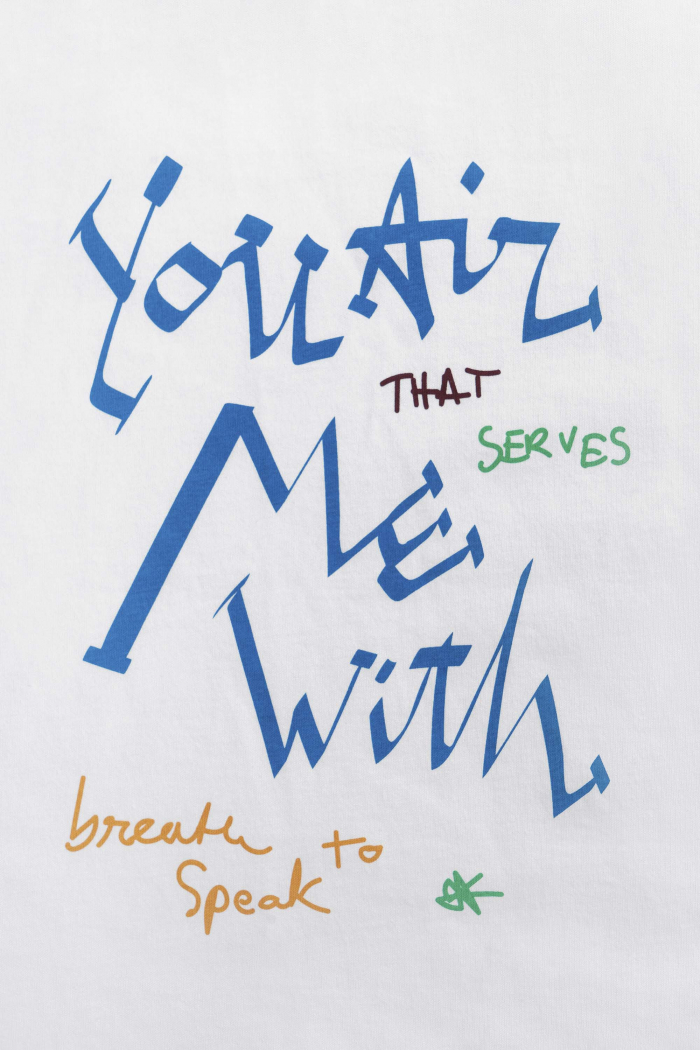 You Air
THAT
SERVES
Me
With
breath to
Speak